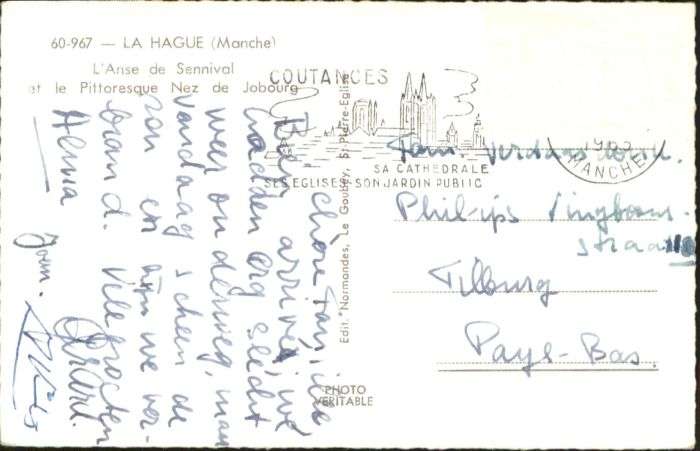 60-967 — LA HAGUE (Manche)
L'Anse de Sennival
et le Pittoresque Nez de Jobourg
COUTANCES
SA CATHEDRALE
SES EGLISES - SON JARDIN PUBLIC
MANCHE
Edit. Normandes, Le Goubey, St-Pierre-Eglise
PHOTO
VERITABLE
chère Famille
Bien arrivé, we
hadden erg slecht
weer onderweg, maar
vandaag scheen de
zon en zijn we ver-
brand. Vele groeten
Fam.
Philips Vingboons-
straat
Tilburg
Pays-Bas.